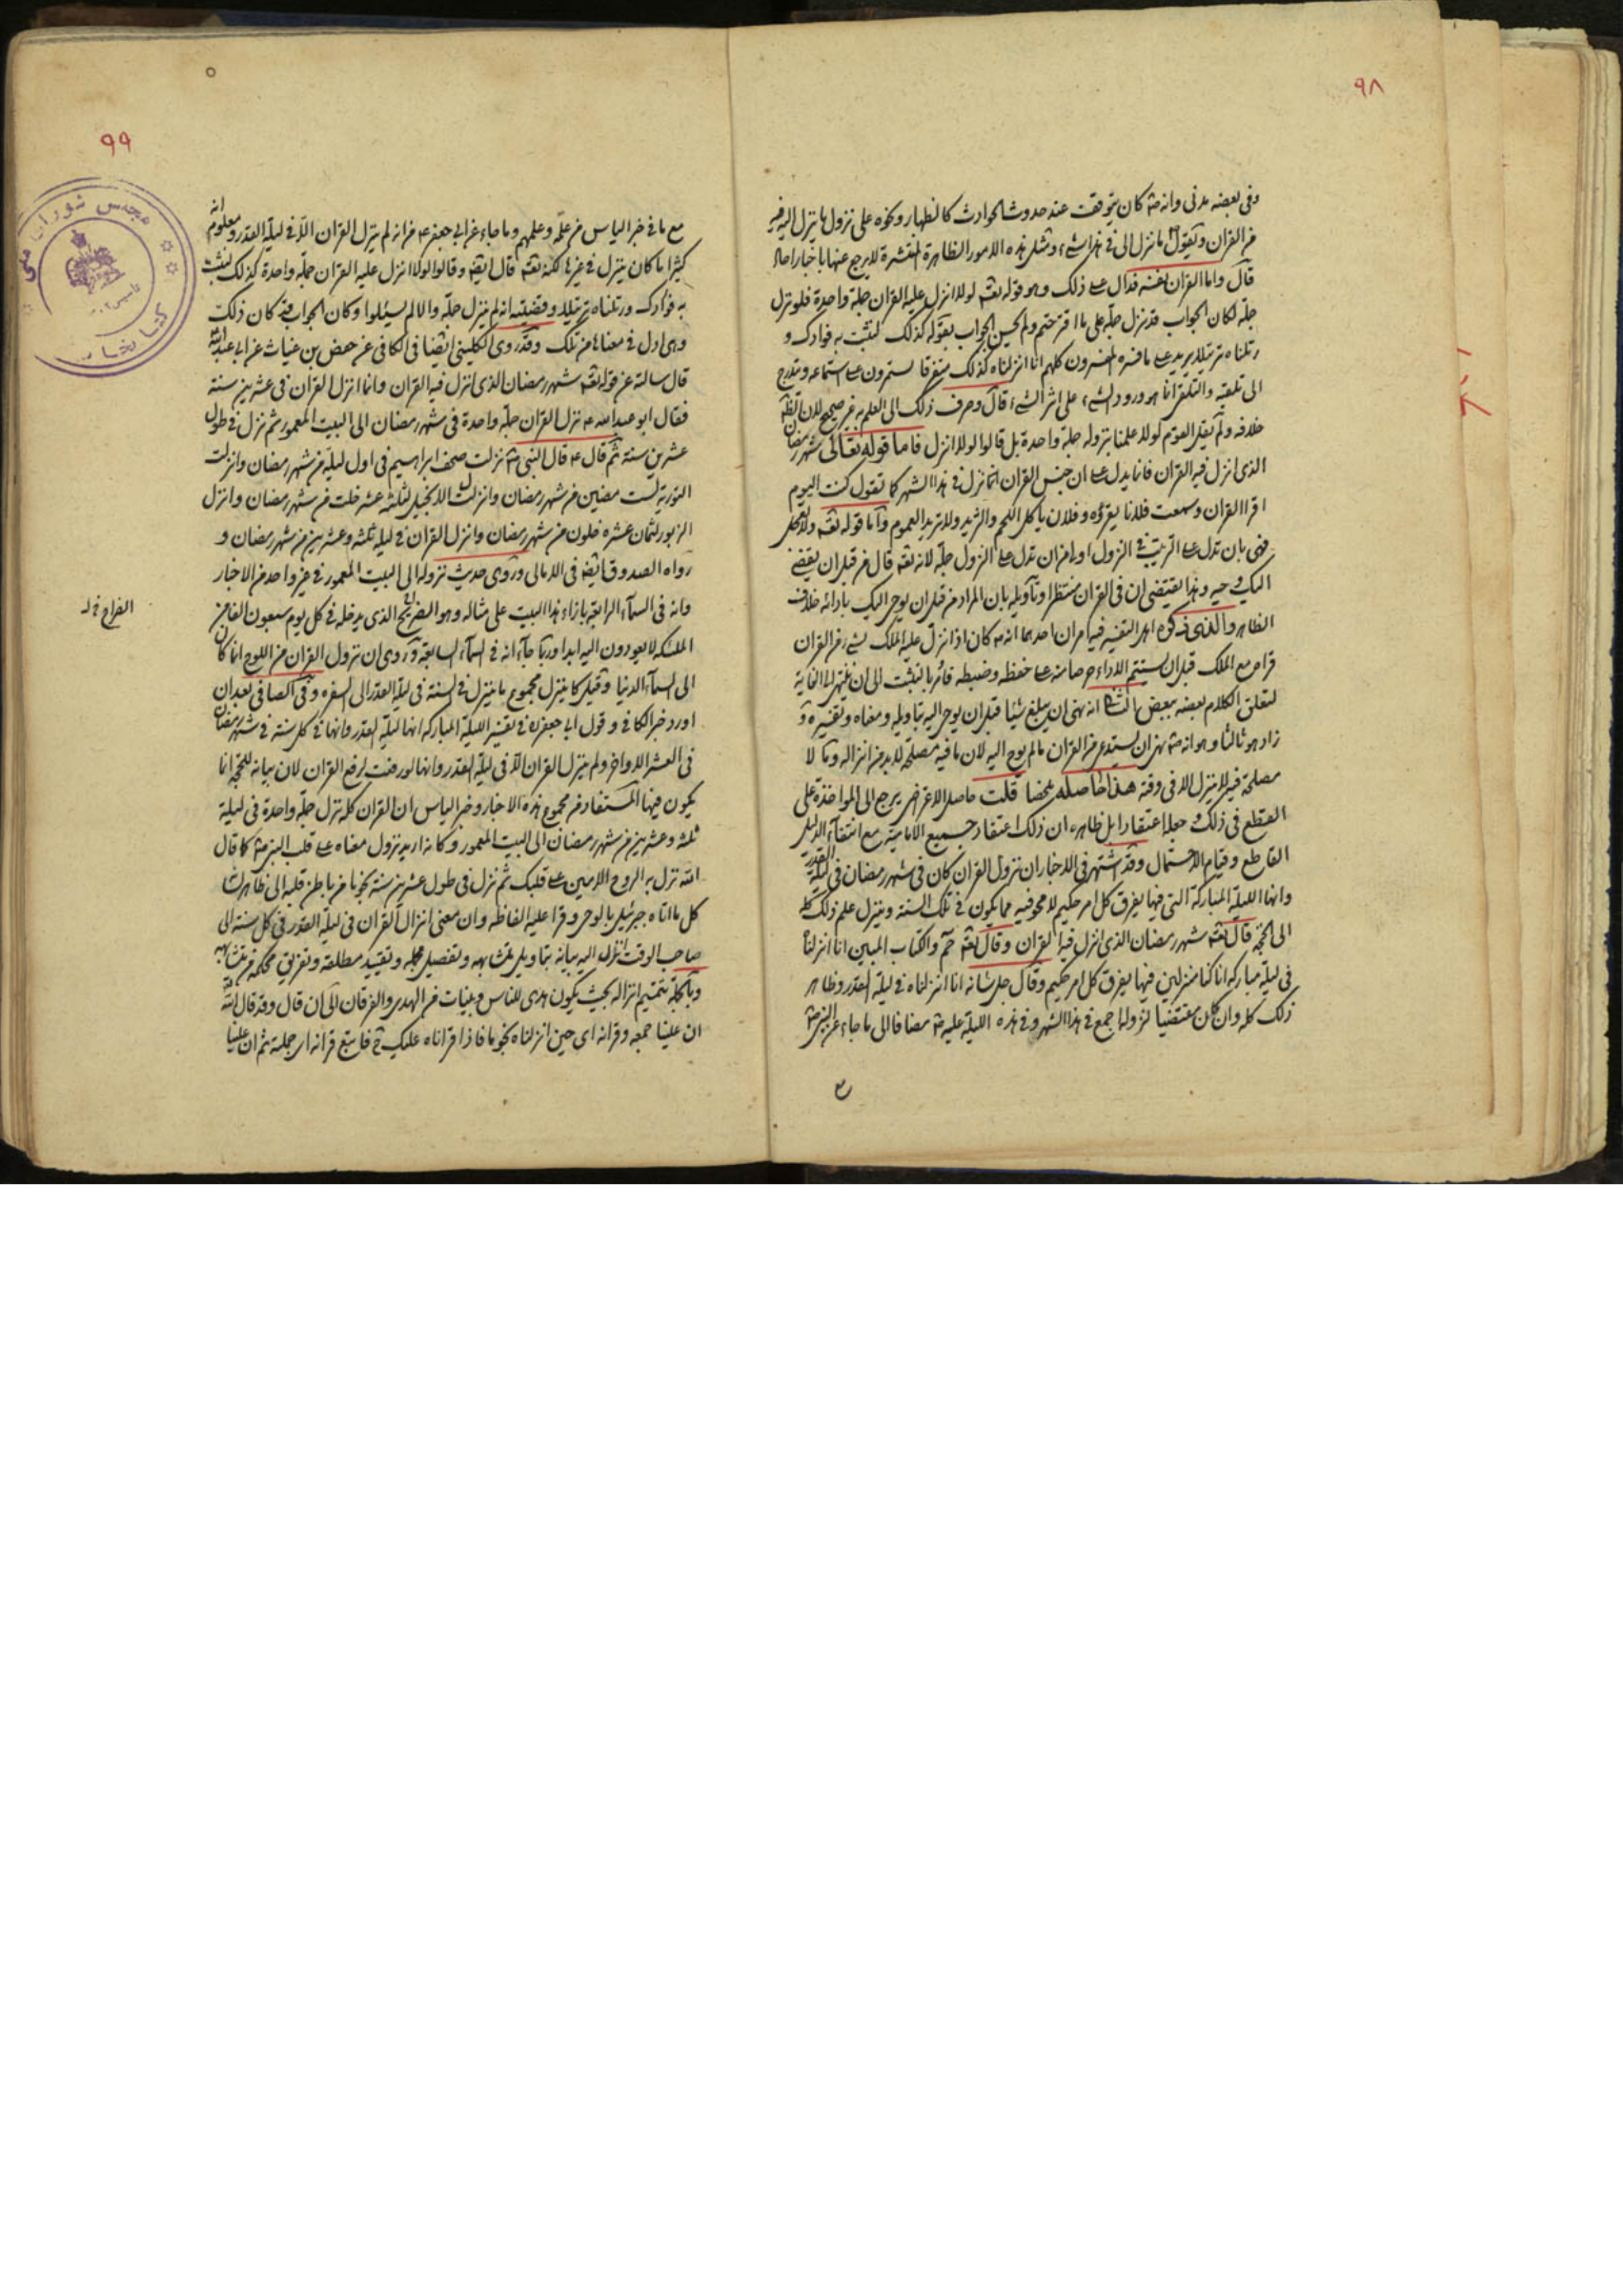 ٩٨
وفى بعضه مدنى وانه ص كان يتوقف عند حدوث الحوادث كالظهار ونحوه على نزول ما ينزل اليه فيه
من القران ويقول ما نزل الى فى هذا شىء ومثل هذه الامور الظاهرة المنتشرة لا يرجع عنها باخبار احاد
قال واما القران نفسه فدال على ذلك وهو قوله تعه لولا انزل عليه القران جملة واحدة فلو نزل
جملة لكان الجواب قد نزل جملة على ما اقترحتم ولم يحسن الجواب بقوله كذلك لنثبت به فوادك و
رتلناه ترتيلا يريد على ما فسره المفسرون كلهم انا انزلناه كذلك متفرقا يستمرون على استماعه ويتدرج
الى تلقيه والتلقى انما هو ورود الشىء على اثر الشىء قال وصرف ذلك الى العلم به غير صحيح لان الظاهر
خلافه ولم يقل القوم لولا علمنا بنزوله جملة واحدة بل قالوا لولا انزل فاما قوله تعالى شهر رمضان
الذى انزل فيه القران فانما يدل على ان جنس القران انما نزل فى هذا الشهر كما تقول كنت اليوم
اقرا القران وسمعت فلانا يقرؤه وفلان ياكل اللحم والثريد ولا تريد العموم واما قوله تعه ولا تعجل
فى بان تدل على الترتيب فى النزول اولى من ان تدل على النزول جملة لانه تعه قال من قبل ان يقضى
اليك وحيه وهذا يقتضى ان فى القران منتظرا وتاويله بان المراد من قبل ان يوحى اليك بادائه خلاف
الظاهر والذى ذكره اهل التفسير فيه امران احدهما انه ص كان اذا نزل عليه الملك بشىء من القران
قراه مع الملك قبل ان يستتم الاداء حرصا منه على حفظه وضبطه فامر بالتثبت الى ان ينتهى الى الغاية
لتعلق الكلام بعضه ببعض الثانى انه نهى ان يبلغ شيئا قبل ان يوحى اليه بتاويله ومعناه وتفسيره و
زاد هو ثالثا وهو انه ص نهى ان يستدعى من القران ما لم يوح اليه لان ما فيه مصلحة لا بد من انزاله وما لا
مصلحة فيه لا ينزل الا فى وقته هذا حاصله ملخصا قلت حاصل الاعتراض يرجع الى المواخذة على
القطع فى ذلك وجعله اعتقادا بل ظاهره ان ذلك اعتقاد جميع الامامية مع انتفاء الدليل
القاطع وقيام الاحتمال وقد اشتهر فى الاخبار ان نزول القران كان فى شهر رمضان فى ليلة القدر
وانها الليلة المباركة التى فيها يفرق كل امر حكيم لا محو فيه مما يكون فى تلك السنة وينزل علم ذلك كله
الى الحجة قال تعه شهر رمضان الذى انزل فيه القران وقال تعه حم والكتاب المبين انا انزلناه
فى ليلة مباركة انا كنا منزلين فيها يفرق كل امر حكيم وقال جل شانه انا انزلناه فى ليلة القدر وظاهر
ذلك كله وان كان مقتضيا لنزوله اجمع فى هذا الشهر وفى هذه الليلة عليه ص مضافا الى ما جاء عن النبى ص
٩٩
مع ما فى خبر الياس من علمه وعلمهم وما جاء عن ابى جعفر ع من انه لم ينزل القران الا فى ليلة القدر ومعلوم انه
كثيرا ما كان ينزل فى غيرها لكنه تعه قال ايضه وقالوا لولا انزل عليه القران جملة واحدة كذلك لنثبت
به فوادك ورتلناه ترتيلا وقضيته انه لم ينزل جملة والا لم يسئلوا وكان الجواب قد كان ذلك
وهى ادل فى معناها من تلك وقد روى الكلينى ايضا فى الكافى عن حفص بن غياث عن ابى عبد الله
قال سالته عن قوله تعه شهر رمضان الذى انزل فيه القران وانما انزل القران فى عشرين سنة
فقال ابو عبد الله ع نزل القران جملة واحدة فى شهر رمضان الى البيت المعمور ثم نزل فى طول
عشرين سنة ثم قال ع قال النبى ص نزلت صحف ابراهيم فى اول ليلة من شهر رمضان وانزلت
التورية لست مضين من شهر رمضان وانزل الانجيل لثلثة عشر خلت من شهر رمضان وانزل
الزبور لثمان عشرة خلون من شهر رمضان وانزل القران فى ليلة ثلثة وعشرين من شهر رمضان و
رواه الصدوق ايضه فى الامالى وروى حديث نزوله الى البيت المعمور فى غير واحد من الاخبار
وانه فى السماء الرابعة بازاء هذا البيت على مثاله وهو الضريح الذى يدخله فى كل يوم سبعون الفا من
الملئكة لا يعودون اليه ابدا وربما جاء انه فى السماء السابعة وروى ان نزول القران من اللوح انما كان
الى السماء الدنيا وقيل كان ينزل مجموع ما ينزل فى السنة فى ليلة القدر الى السفرة وفى الصافى بعد ان
اورد خبر الكافى وقول ابى جعفر ع فى تفسير الليلة المباركة انها ليلة القدر وانها فى كل سنة فى شهر رمضان
فى العشر الاواخر ولم ينزل القران الا فى ليلة القدر وانها لو رفعت لرفع القران لان بيانه للحجة انما
يكون فيها المستفاد من مجموع هذه الاخبار وخبر الياس ان القران كله نزل جملة واحدة فى ليلة
ثلثة وعشرين من شهر رمضان الى البيت المعمور وكانه اريد نزول معناه على قلب النبى ص كما قال
الله نزل به الروح الامين على قلبك ثم نزل فى طول عشرين سنة نجوما من باطن قلبه الى ظاهر لسانه
كل ما اتاه جبرئيل بالوحى وقرا عليه الفاظه وان معنى انزال القران فى ليلة القدر فى كل سنة الى
صاحب الوقت انزاله اليه بيانه بتاويل متشابهه وتفصيل مجمله وتقييد مطلقه وتفريق محكمه من متشابهه
وبالجملة تتميم انزاله بحيث يكون هدى للناس وبينات من الهدى والفرقان الى ان قال وقد قال الله
ان علينا جمعه وقرانه اى حين انزلناه نجوما فاذا قراناه عليك ح فاتبع قرانه اى جملته ثم ان علينا
مجلس شوراى ملى
كتابخانه